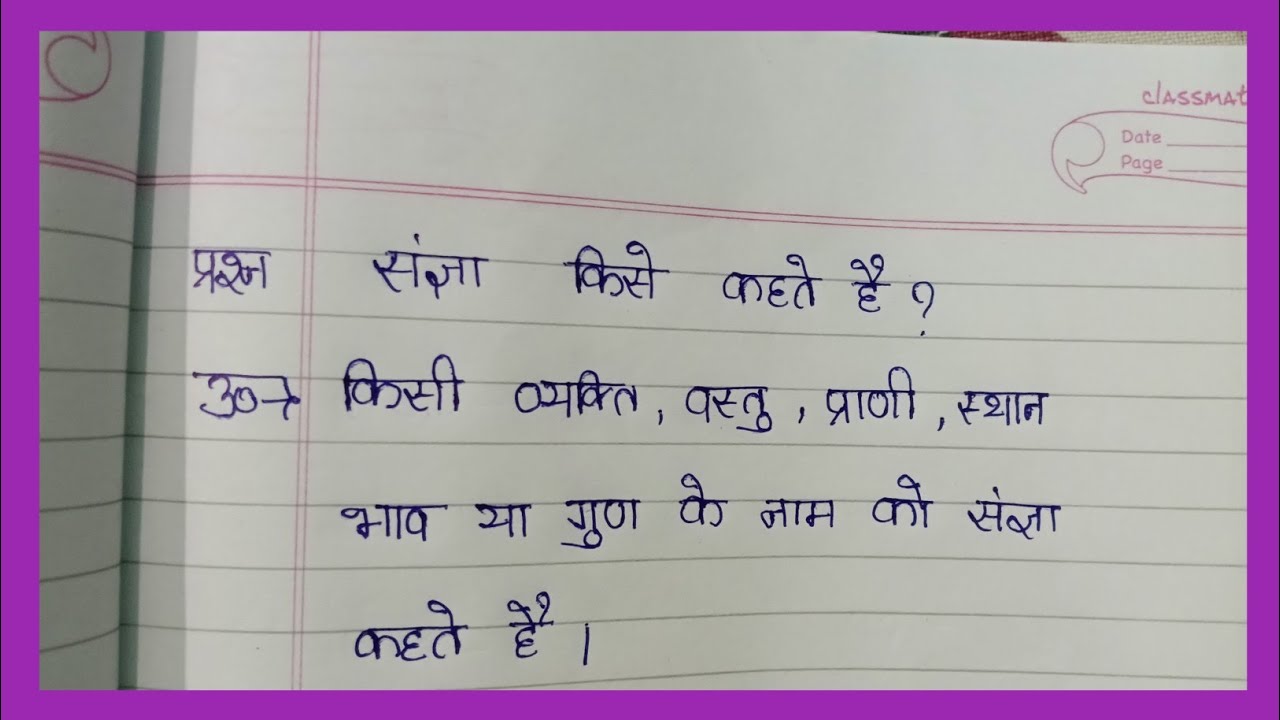 classmat
Date
Page
प्रश्न संज्ञा किसे कहते है ?
उ०→ किसी व्यक्ति, वस्तु, प्राणी, स्थान
भाव या गुण के नाम को संज्ञा
कहते है ।